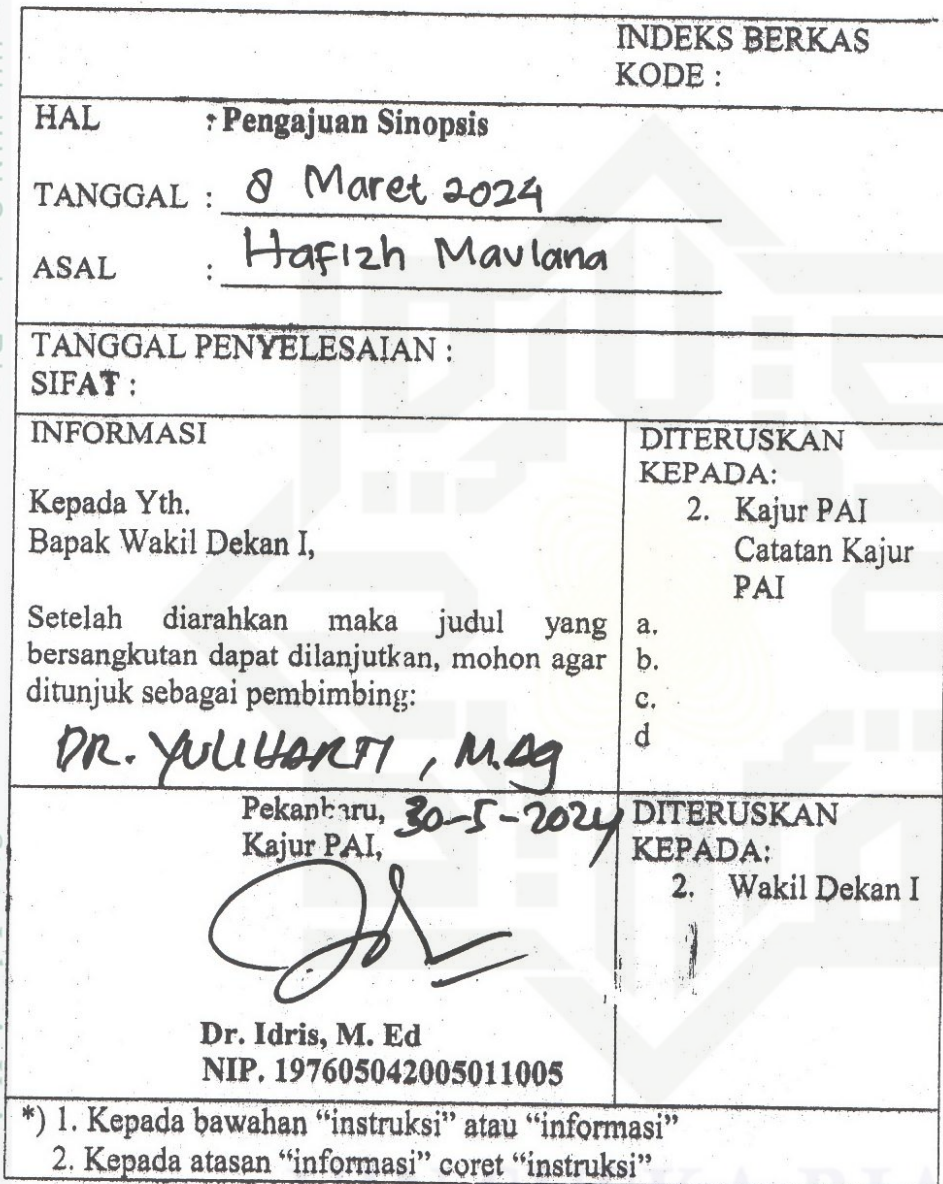 INDEKS BERKAS
KODE :
HAL : Pengajuan Sinopsis
TANGGAL : 8 Maret 2024
ASAL : Hafizh Maulana
TANGGAL PENYELESAIAN :
SIFAT :
INFORMASI
Kepada Yth.
Bapak Wakil Dekan I,
Setelah diarahkan maka judul yang
bersangkutan dapat dilanjutkan, mohon agar
ditunjuk sebagai pembimbing:
DR. YULIHARTI, M.Ag
DITERUSKAN
KEPADA:
2. Kajur PAI
Catatan Kajur
PAI
a.
b.
c.
d
Pekanbaru, 30-5-2024
Kajur PAI,
Dr. Idris, M. Ed
NIP. 197605042005011005
DITERUSKAN
KEPADA:
2. Wakil Dekan I
*) 1. Kepada bawahan “instruksi” atau “informasi”
2. Kepada atasan “informasi” coret “instruksi”